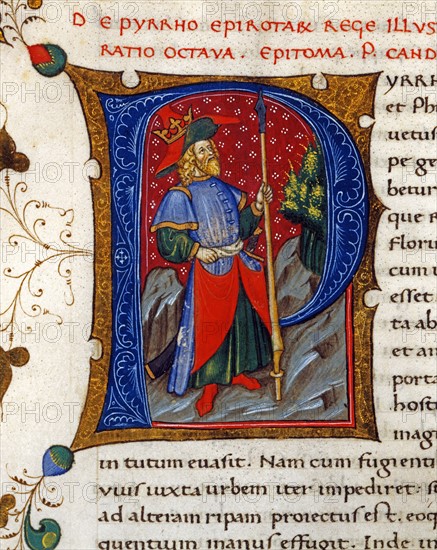 DE PYRRHO EPIROTAR REGE ILLUS
RATIO OCTAVA. EPITOMA. P. CAND
PYRRH
et Ph
uetus
pe ge
betur
que R
Floru
cum u
esset
ta ab
et am
porta
hosti
magi
in tutum euasit. Nam cum fugienti
uiis iuxta urbem iter impediret: s
ad alteram ripam proiectus est. eoq
quentium manus effugit. Inde in